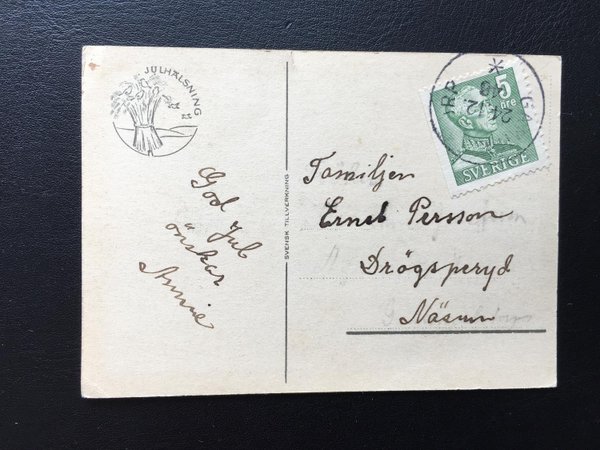 JULHÄLSNING
God Jul
önskar
Annie
SVENSK TILLVERKNING
Familjen
Ernst Persson
Drögsperyd
Näsum
5
öre
SVERIGE
24.12.